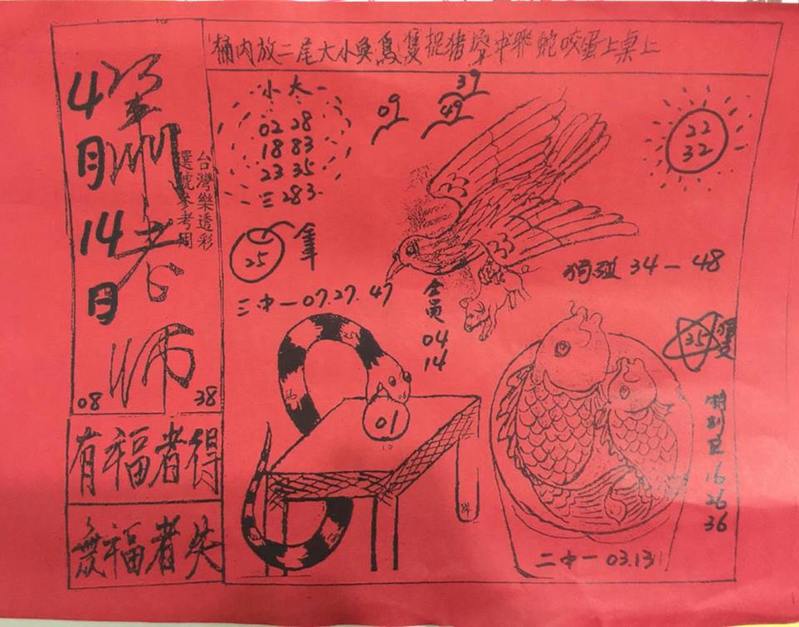 桶內放二尾大小魚鳥隻捉猪空中飛蛇咬蛋上桌上
4月14日
老师
台灣樂透彩
選號參考用
08 38
有福者得
無福者失
小 大
02 28
18 83
23 35
三 283
09
39
49
22
32
25
三中一07.27.47
全員
04
14
34-48
35
隻
01
特別
16
26
36
二中一03.13